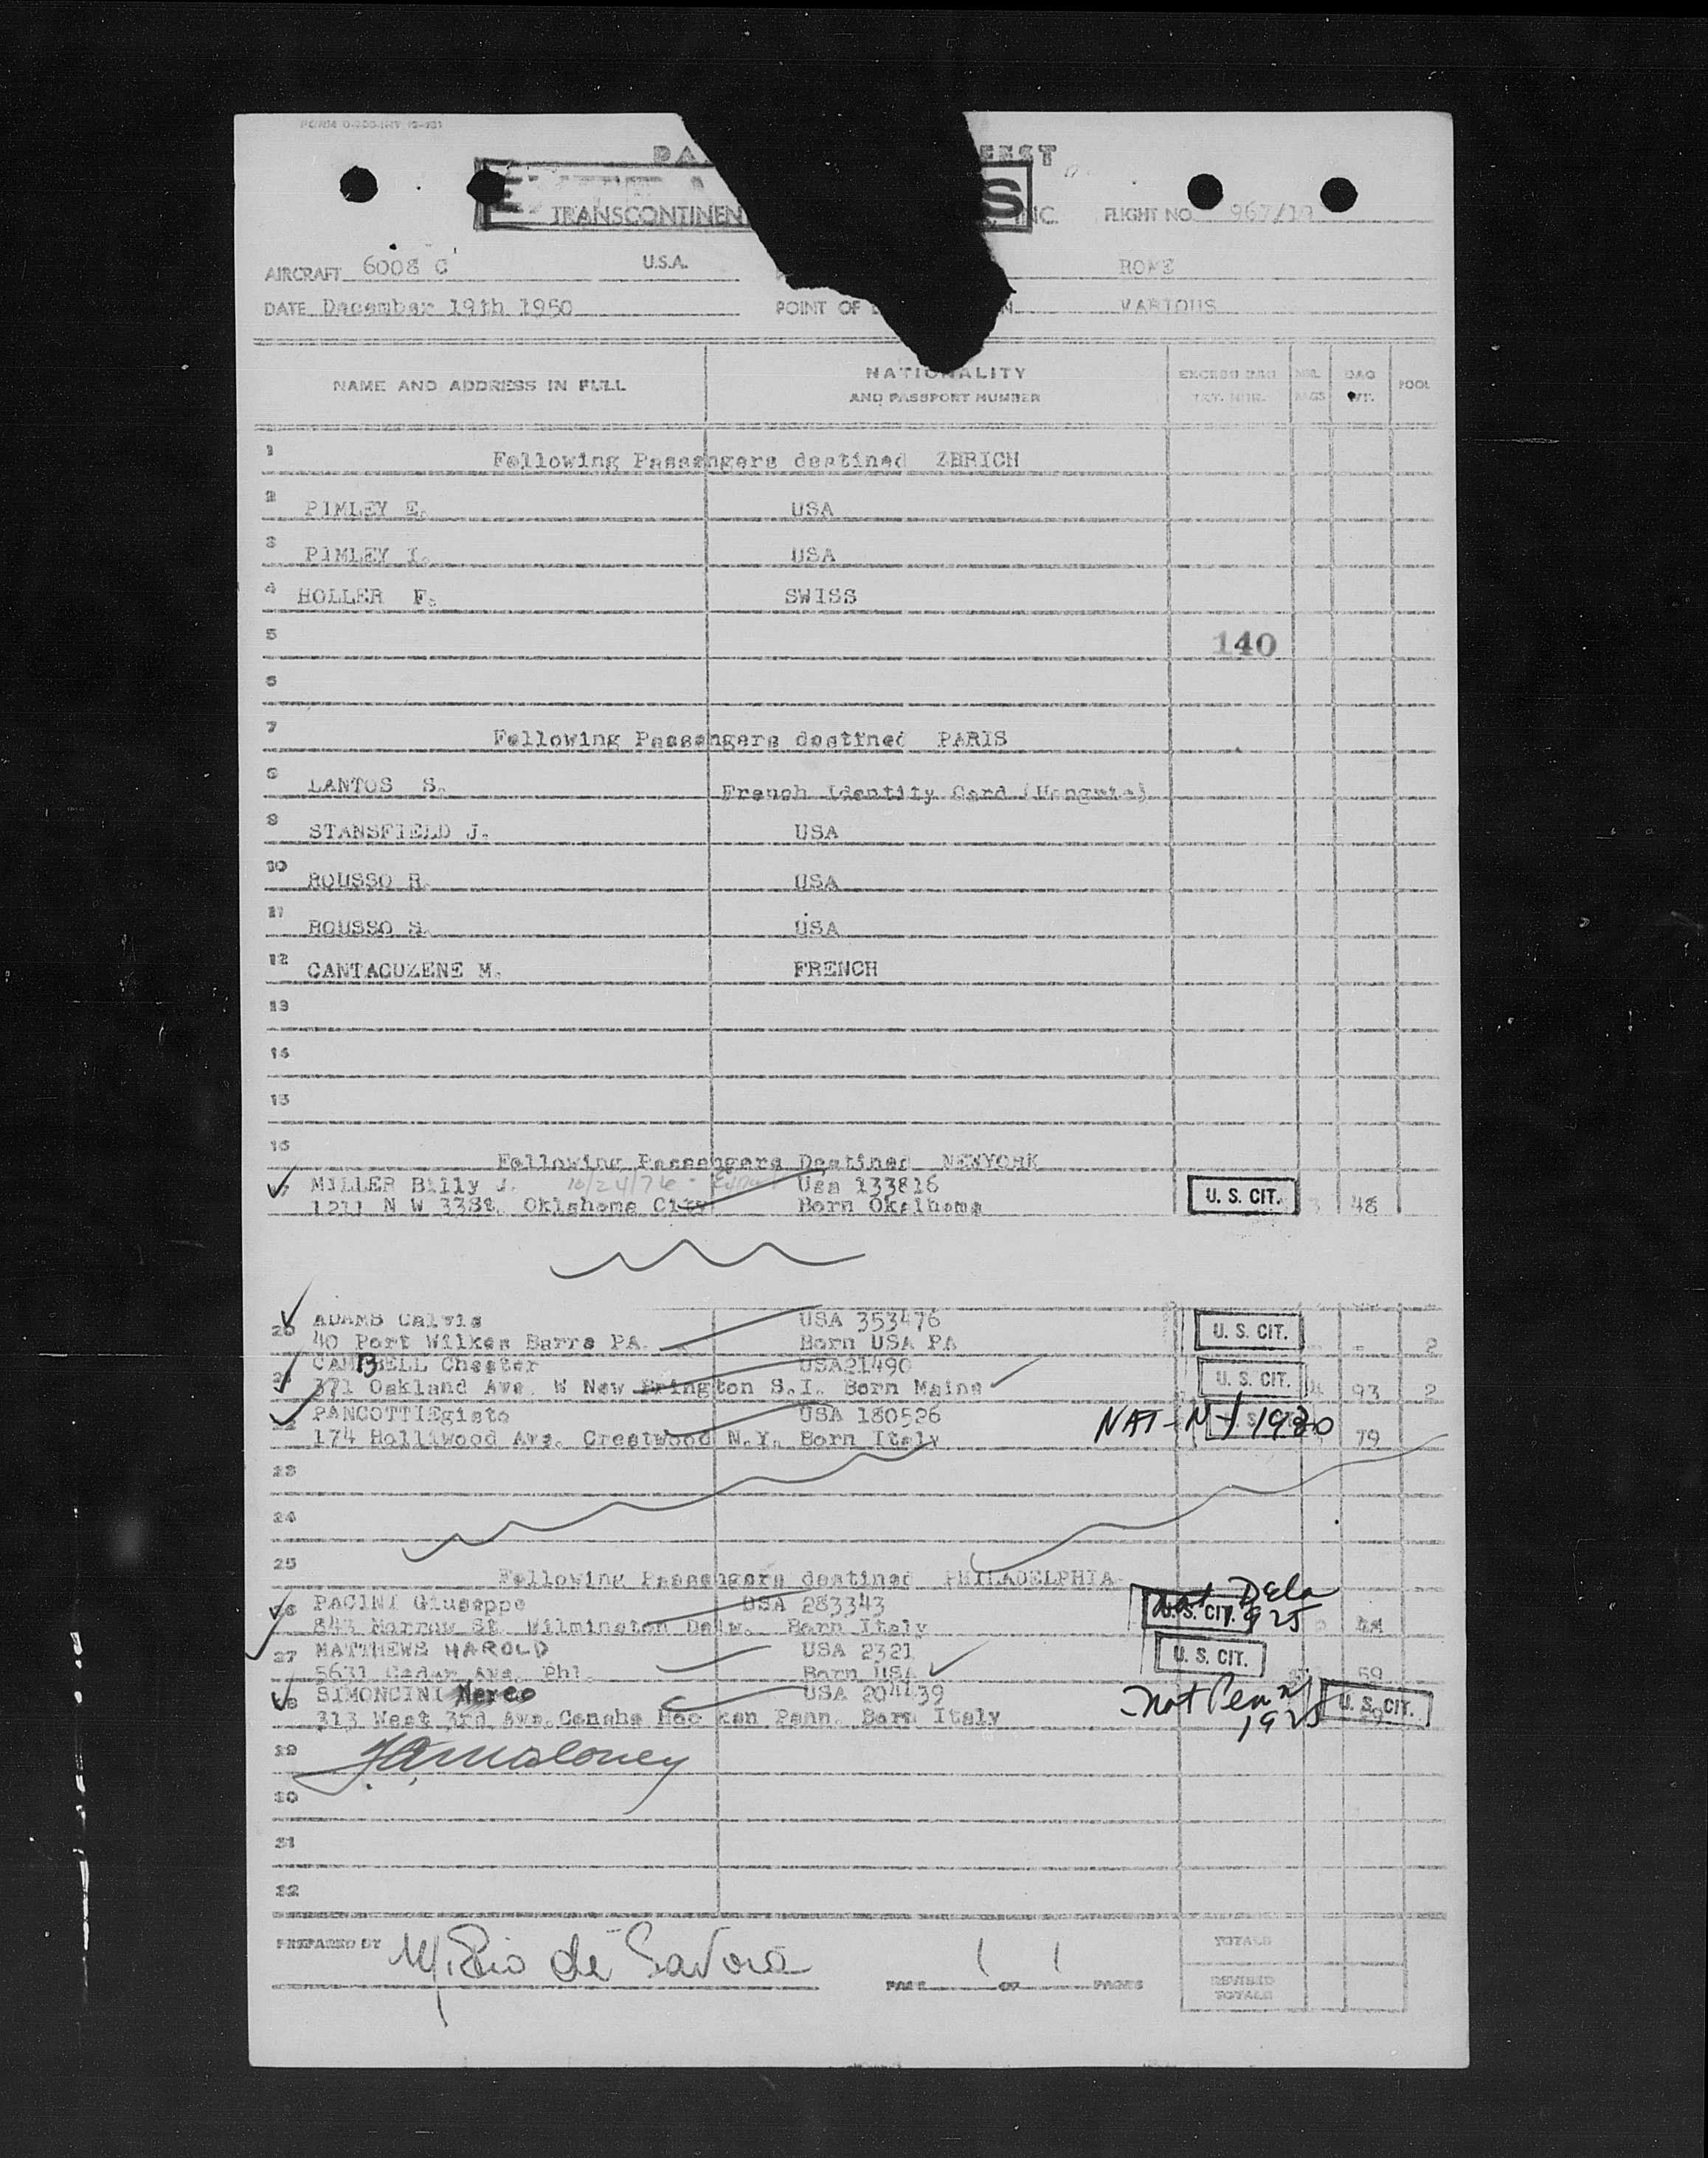 TRANSCONTINEN INC. FLIGHT NO 967/19
AIRCRAFT 6008 C U.S.A. ROME
DATE December 19th 1950 POINT OF VARIOUS
NAME AND ADDRESS IN FULL NATIONALITY AND PASSPORT NUMBER POOL
1 Following Passengers destined ZURICH
2 PIMLEY E. USA
3 PIMLEY I. USA
4 HOLLER F. SWISS
5 140
6
7 Following Passengers destined PARIS
8 LANTOS S. French Identity Card
9 STANSFIELD J. USA
10 ROUSSO R. USA
11 ROUSSO S. USA
12 CANTACUZENE M. FRENCH
13
14
15
16 Following Passengers Destined NEWYORK
MILLER Billy J. 10/24/76 Usa 133816
1211 N W 33St. Oklahoma City Born Okalhoma U. S. CIT. 3 48
20 ADAMS Calvis USA 353476 U. S. CIT.
40 Port Wilkes Barre PA. Born USA PA 2
CAMBELL Chester USA21490 U. S. CIT.
371 Oakland Ave. W New Brington S.I. Born Maine 4 93 2
PANCOTTIEgisto USA 180526 NAT-NY 1930
174 Holliwood Ave. Crestwood N.Y. Born Italy 79
23
24
25 Following Passengers destined PHILADELPHIA
26 PACINI Giuseppe USA 283343 Nat Dela 1925
Wilmington Delw. Born Italy U. S. CIT.
27 MATTHEWS HAROLD USA 2321 U. S. CIT.
5631 Cedar Ave. Phl. Born USA 59
SIMONCINI Nereo USA 204439 Nat Penn 1925 U. S. CIT.
313 West 3rd Ave. Penn. Born Italy
29 J.A. Maloney
30
31
32
PREPARED BY
PAGE 1 OF 1 PAGES
TOTALS
REVISED TOTALS